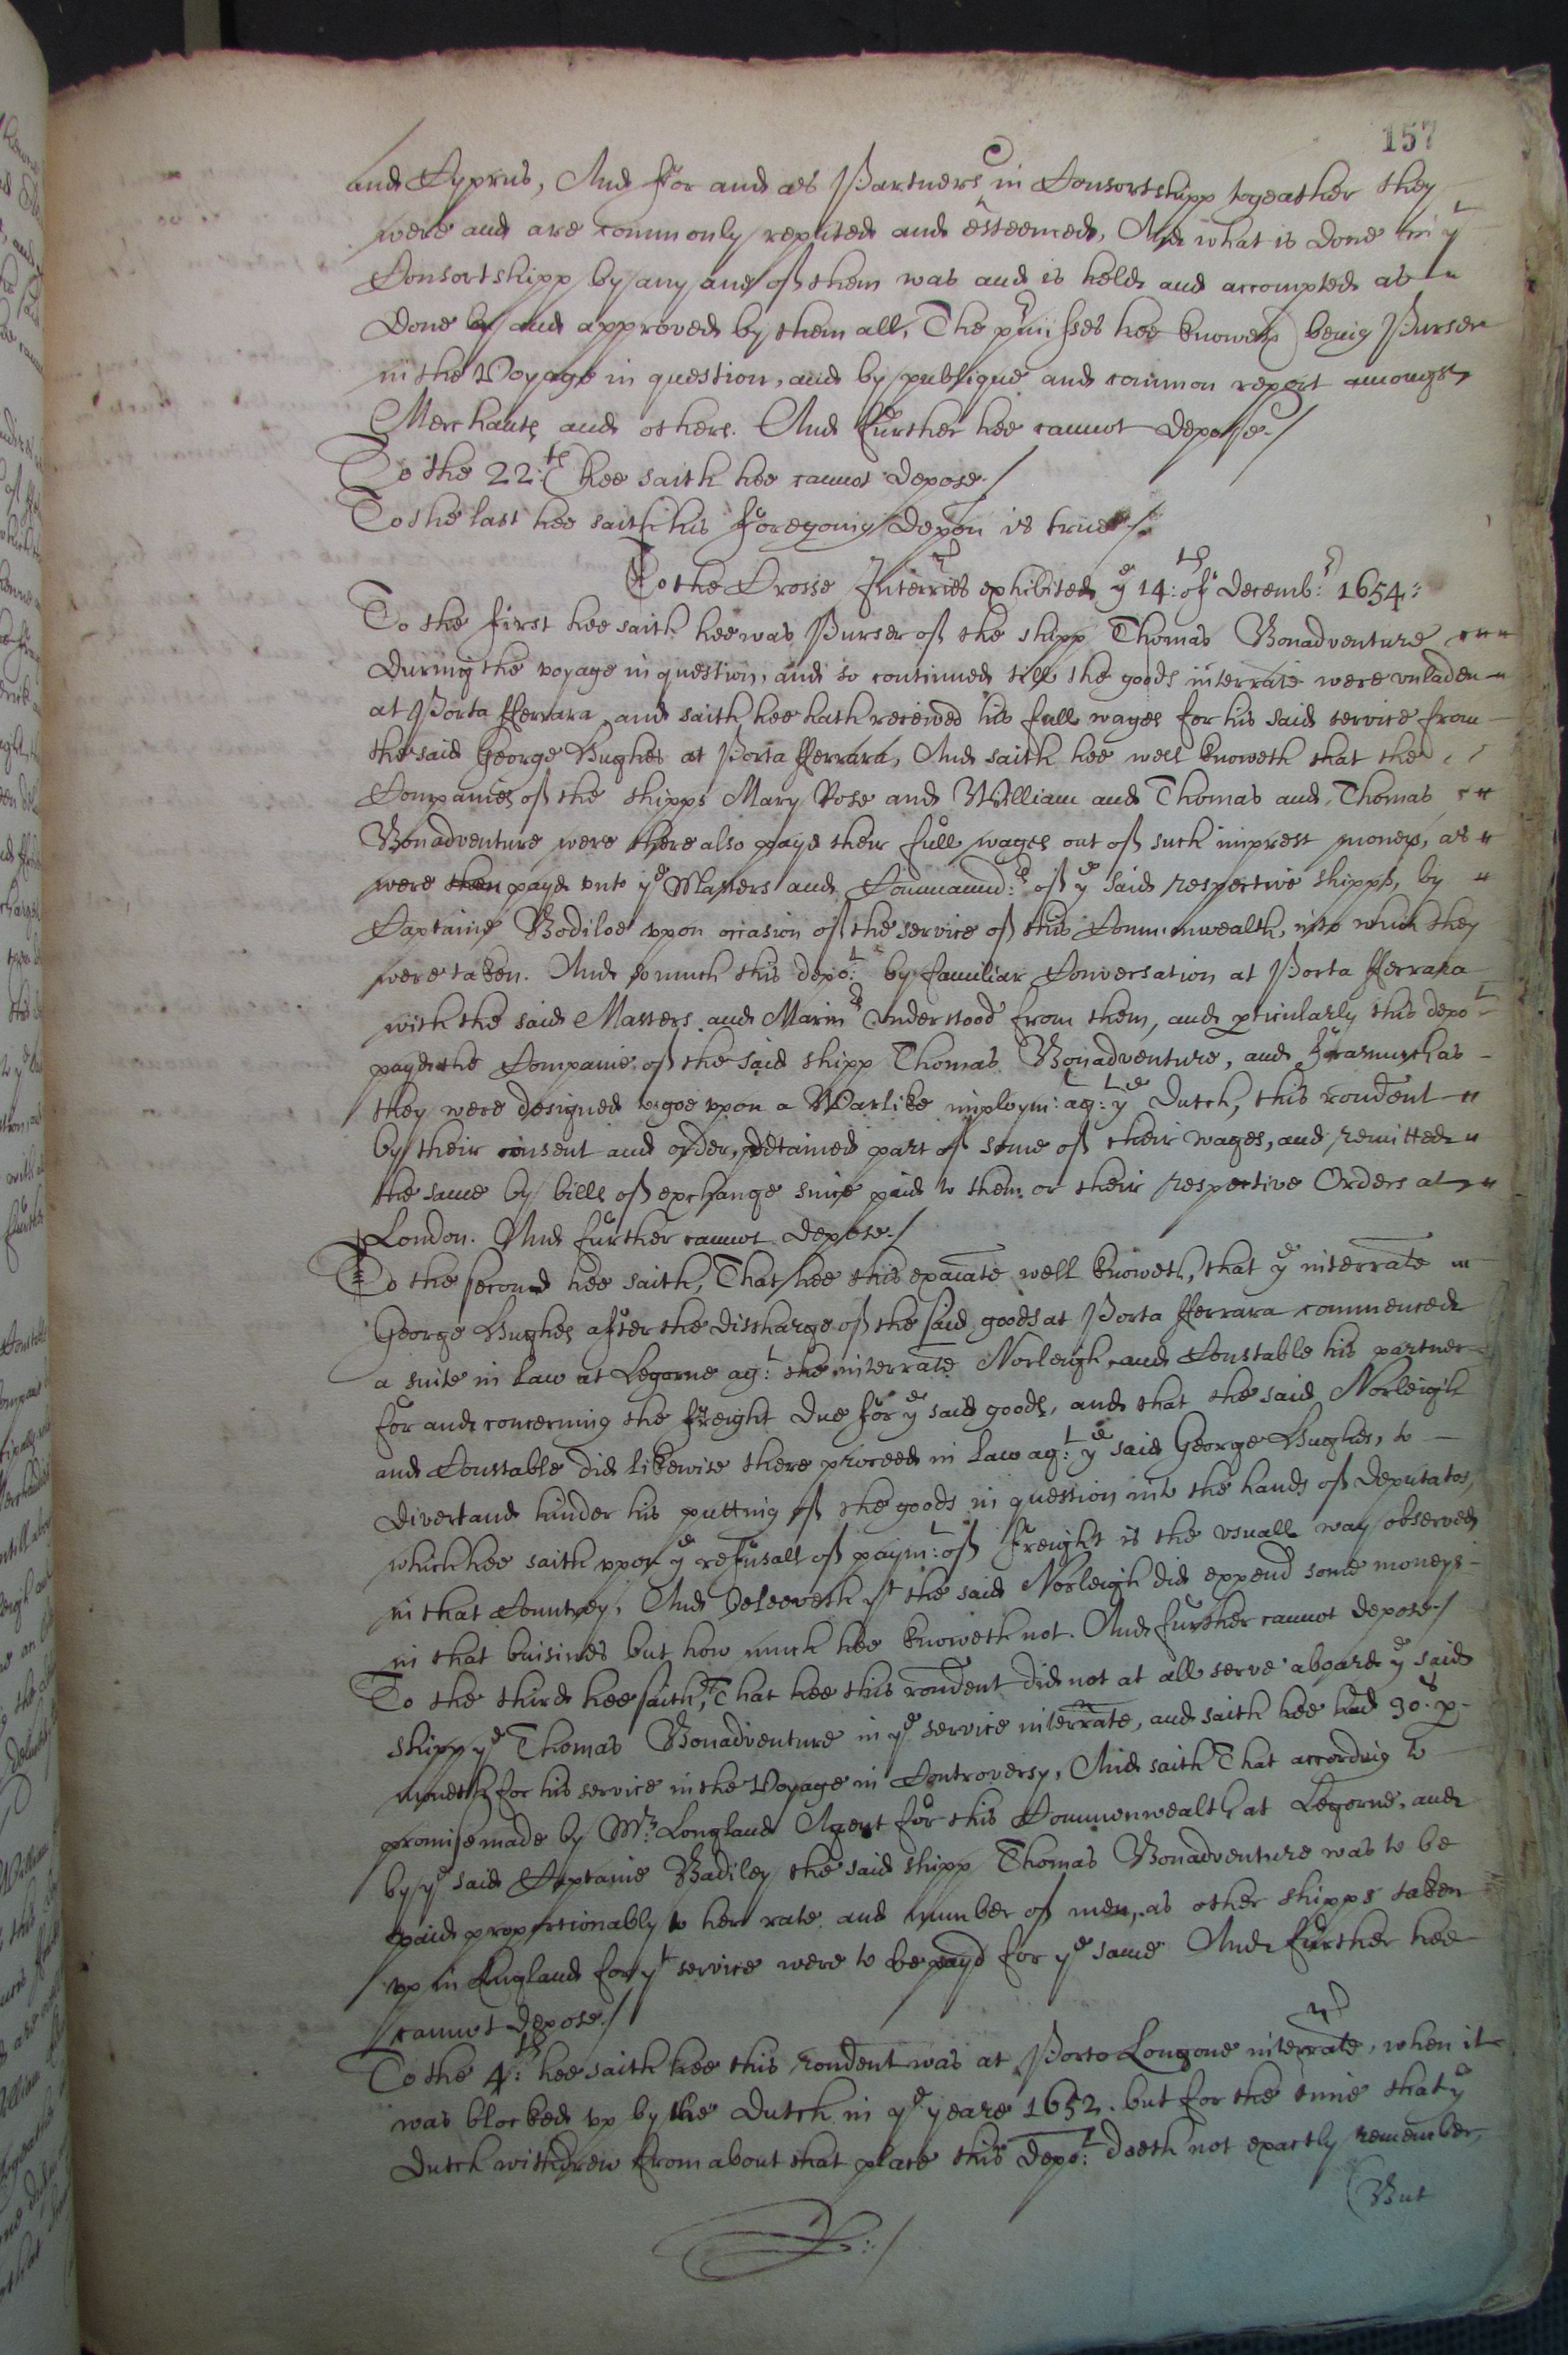 157
and Cyprus, And for and as Partners in Consortshipp togeather they
were and are commonly reputed and esteemed, And what is done in yt
Consortshipp by any one of them was and is held and accompted as
done by and approved by them all, The prmisses hee knoweth being Purser
in the Voyage in question, and by publique and common report amongst
Merchants and others. And further hee cannot depose./
To the 22:th hee saith hee cannot depose./
To the last hee saith his foregoing depon is true./.
To the Crosse Interries exhibited ye 14:th of Decembr: 1654:
To the first hee saith hee was Purser of the shipp Thomas Bonadventure
during the voyage in question, and so continued till the goods interrate were vnladen
at Porta fferrara and saith hee hath received his full wages for his said service from
the said George Hughes at Porta fferrara, And saith hee well knoweth that the
Companies of the shipps Mary Rose and William and Thomas and Thomas
Bonadventure were there also payd their full wages out of such imprest moneys, as
were then payd vnto ye Masters and Command:rs of ye said respective shipps, by
Captaine Bodiloe vpon occasion of the service of this Commonwealth, into which they
were taken. And so much this depo:t by familiar Conversation at Porta fferrara
with the said Masters and Marinrs vnderstood from them, and pticularly this depot
payd the Companie of the said shipp Thomas Bonadventure, and forasmuch as
they were designed to goe vpon a Warlike imploym:t ag:t ye Dutch, this rondent
by their consent and order, detained part of some of their wages, and remitted
the same by bills of exchange since paid to them or their respective Orders at
London. And further cannot depose./
To the second hee saith, That hee this exaiate well knoweth, that ye interrate
George Hughes after the discharge of the said goods at Porta fferrara commenced
a suite in law at Legorne ag:t the interrate Norleigh and Constable his partner
for and concerning the freight due for ye said goods, and that the said Norleigh
and Constable did likewise there proceed in law ag:t ye said George Hughes, to
divert and hinder his putting of the goods in question into the hands of Deputatos,
which hee saith vpon ye refusall of paym:t of freight is the vsuall way observed
in that Countrey, And beleeveth yt the said Norleigh did expend some moneys
in that buisines but how much hee knoweth not. And further cannot depose./
To the third hee saith, That hee this rondent did not at all serve aboard ye said
shipp ye Thomas Bonadventure in ye service interrate, and saith hee had 30.s p
moneth for his service in the Voyage in Controversy, And saith That according to
promise made by Mr: Longland Agent for this Commonwealth at Legorne, and
by ye said Captaine Badiley the said shipp Thomas Bonadventure was to be
paid proportionably to her rate and number of men, as other shipps taken
vp in England for yt service were to be payd for ye same And further hee
cannot depose./
To the 4:th hee saith hee this rondent was at Porto Longone interrate, when it
was blocked vp by the Dutch in ye yeare 1652. but for the time that ye
Dutch withdrew from about that place this depo:t doeth not exactly remember,
But